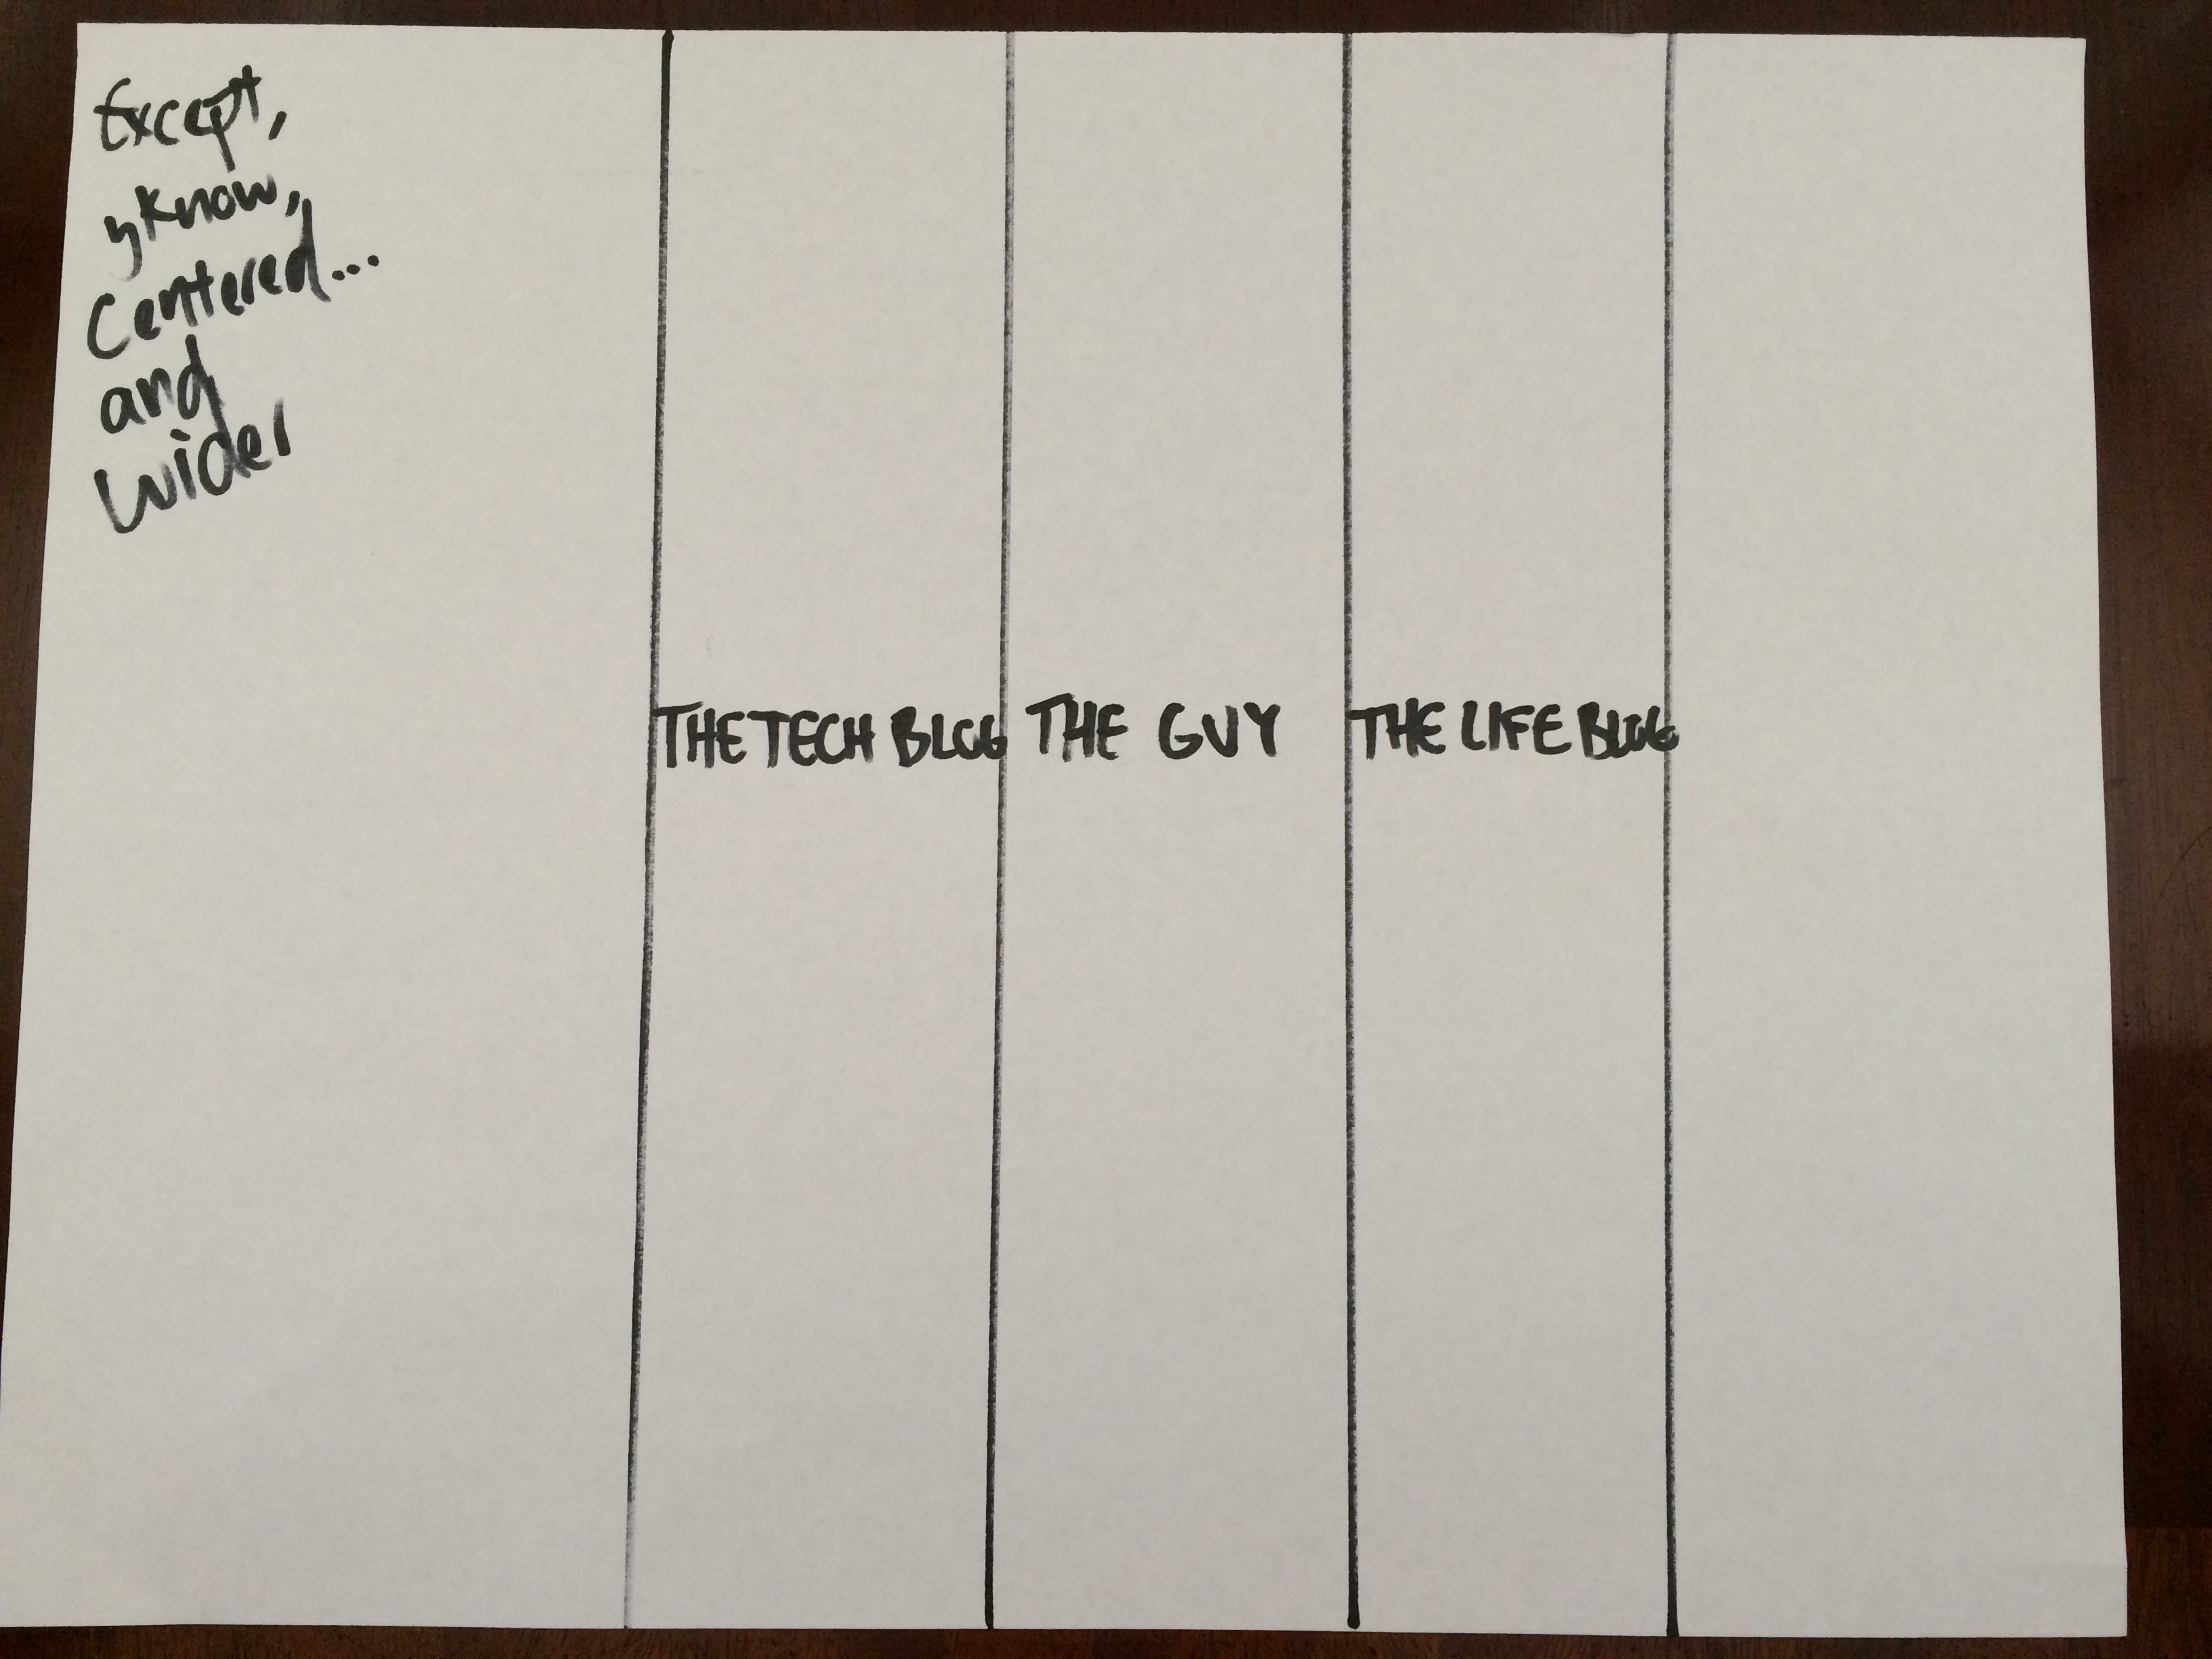 Except,
yknow,
Centered...
and
wider
THE TECH BLOG
THE GUY
THE LIFE BLOG